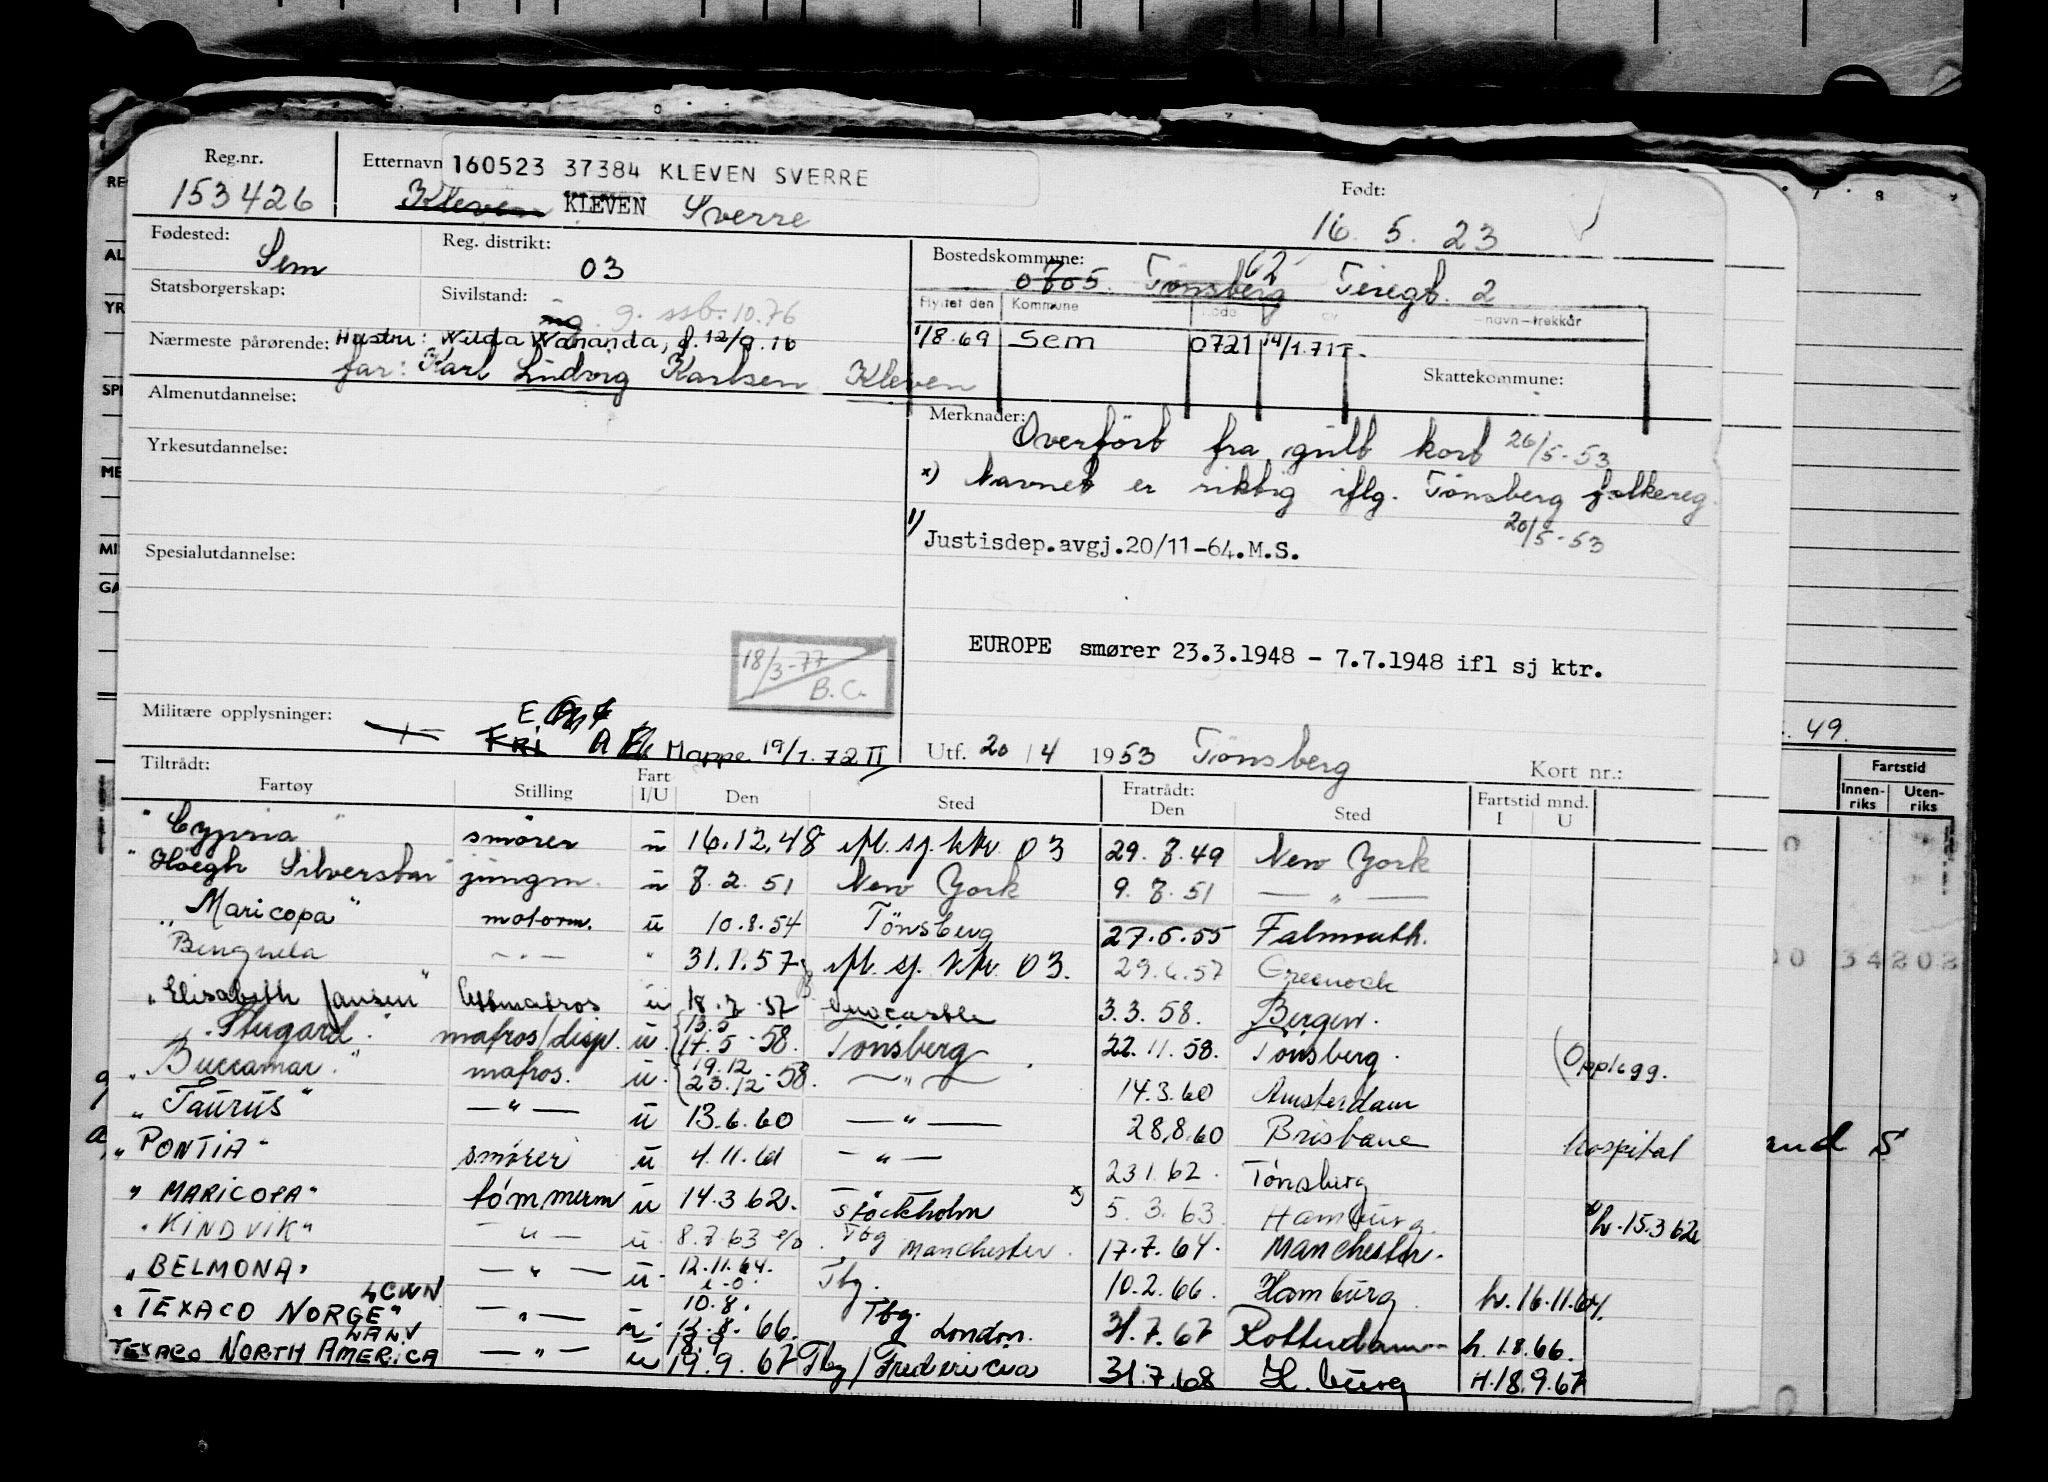 Reg.nr. 153426
Etternavn 160523 37384 KLEVEN SVERRE
Kleven KLEVEN Sverre
Født: 16. 5. 23
Fødested: Sem
Reg. distrikt: 03
Bostedskommune: 0705. Tønsberg
Statsborgerskap:
Sivilstand: ug. g. ssb. 10.76
Flyttet den Kommune
navn-trekkår
1/8.69 Sem 0721 14/1.71
Nærmeste pårørende: Hustru:
far: Karl Ludvig Karlsen Kleven
Skattekommune:
Almenutdannelse:
Merknader: Overført fra gult kort 26/5-53
x) Navnet er riktig iflg. Tønsberg folkereg. 20/5-53
Yrkesutdannelse:
1) Justisdep.avgj.20/11-64.M.S.
Spesialutdannelse:
EUROPE smører 23.3.1948 - 7.7.1948 ifl sj ktr.
18/3-77 B.C.
Militære opplysninger: FRI Mappe 19/1.72 II
Utf. 20/4 1953 Tønsberg
Kort nr.:
49.
Tiltrådt:
Fartøy Stilling Fart I/U Den Sted Fratrådt: Den Sted Fartstid mnd. I U
Fartstid
Innen-riks Uten-riks
"Cypria" smører u 16.12.48 ifl. sj. ktr. 03 29.7.49 New York
"Høegh Silverstar" jungm. u 7.2.51 New York 9.7.51 — " —
"Maricopa" motorm. u 10.8.54 Tönsberg 27.5.55 Falmouth.
Benguela — " — " 31.1.57 ifl. sj. ktr. 03. 29.6.57 Greenock
"Elisabeth Jansen" lettmatros u 18.7.57 3.3.58. Bergen.
matros/disp. u. 13.5 17.5-58. Tönsberg 22.11.58. Tønsberg. (Opplegg.
"Buccamar." matros. u. 19.12 23.12-58. — " — 14.3.60 Amsterdam
"Taurus" — " — u 13.6.60 — " — 28.8.60 Brisbane hospital
"PONTIA" smører u 4.11.61 — " — 23.1.62. Tønsberg
"MARICOPA" tømmerm u 14.3.62. Stockholm x) 5.3.63. Hamburg. h.15.3.62
"KINDVIK" — " — u. 8.7.63 Tbg Manchester. 17.7.64. Manchester.
"BELMONA" — " — u. 12.11.64. Tbg. 10.2.66. Hamburg. h.16.11.64.
LCWN
"TEXACO NORGE" — " — u. 10.8. 66. Tbg. London. 31.7.67 Rotterdam h.1.8.66.
LALV
TEXACO NORTH AMERICA — " — u 19.9.67 Tbg/Fredericia 31.7.68 H.burg H.18.9.67